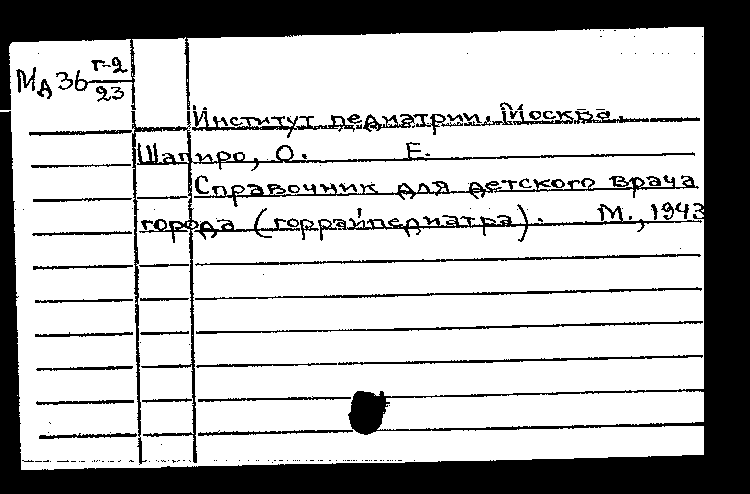 МА36 г-2/23
Институт педиатрии. Москва.
Шапиро, О. Е.
Справочник для детского врача
города (горрайпедиатра). М., 1943